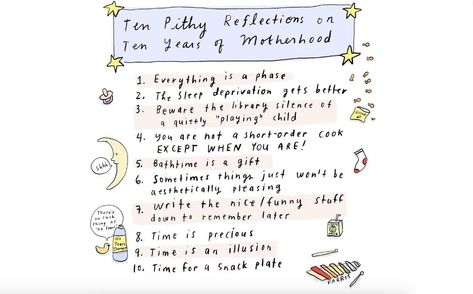 Ten Pithy Reflections on
Ten Years of Motherhood
1. Everything is a phase
2. The sleep deprivation gets better
3. Beware the library silence of
a quietly "playing" child
4. You are not a short-order cook
EXCEPT WHEN YOU ARE!
5. Bathtime is a gift
6. Sometimes things just won't be
aesthetically pleasing
7. Write the nice/funny stuff
down to remember later
8. Time is precious
9. Time is an illusion
10. Time for a snack plate
shhh
There's
no such
thing as
No
Tears
FARRIS